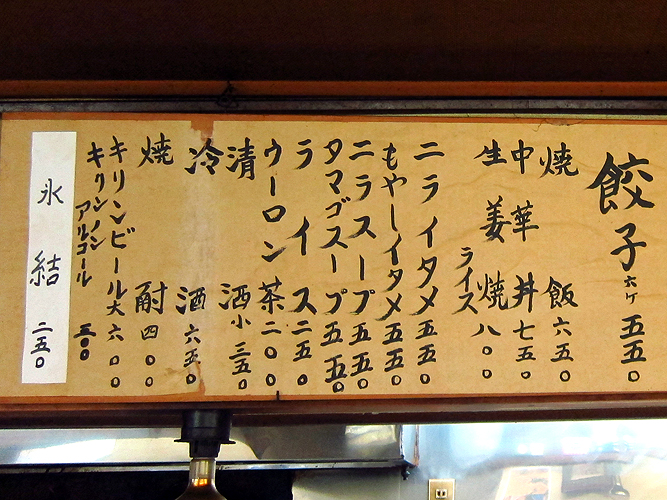 餃子 六ケ 五五〇
焼飯 六五〇
中華丼 七五〇
生姜焼 ライス 八〇〇
ニライタメ 五五〇
もやしイタメ 五五〇
ニラスープ 五五〇
タマゴスープ 五五〇
ライス 二五〇
ウーロン茶 二〇〇
清酒 小 三五〇
冷酒 六五〇
焼酎 四〇〇
キリンビール 大 六〇〇
キリンノンアルコール 三〇〇
氷結 二五〇